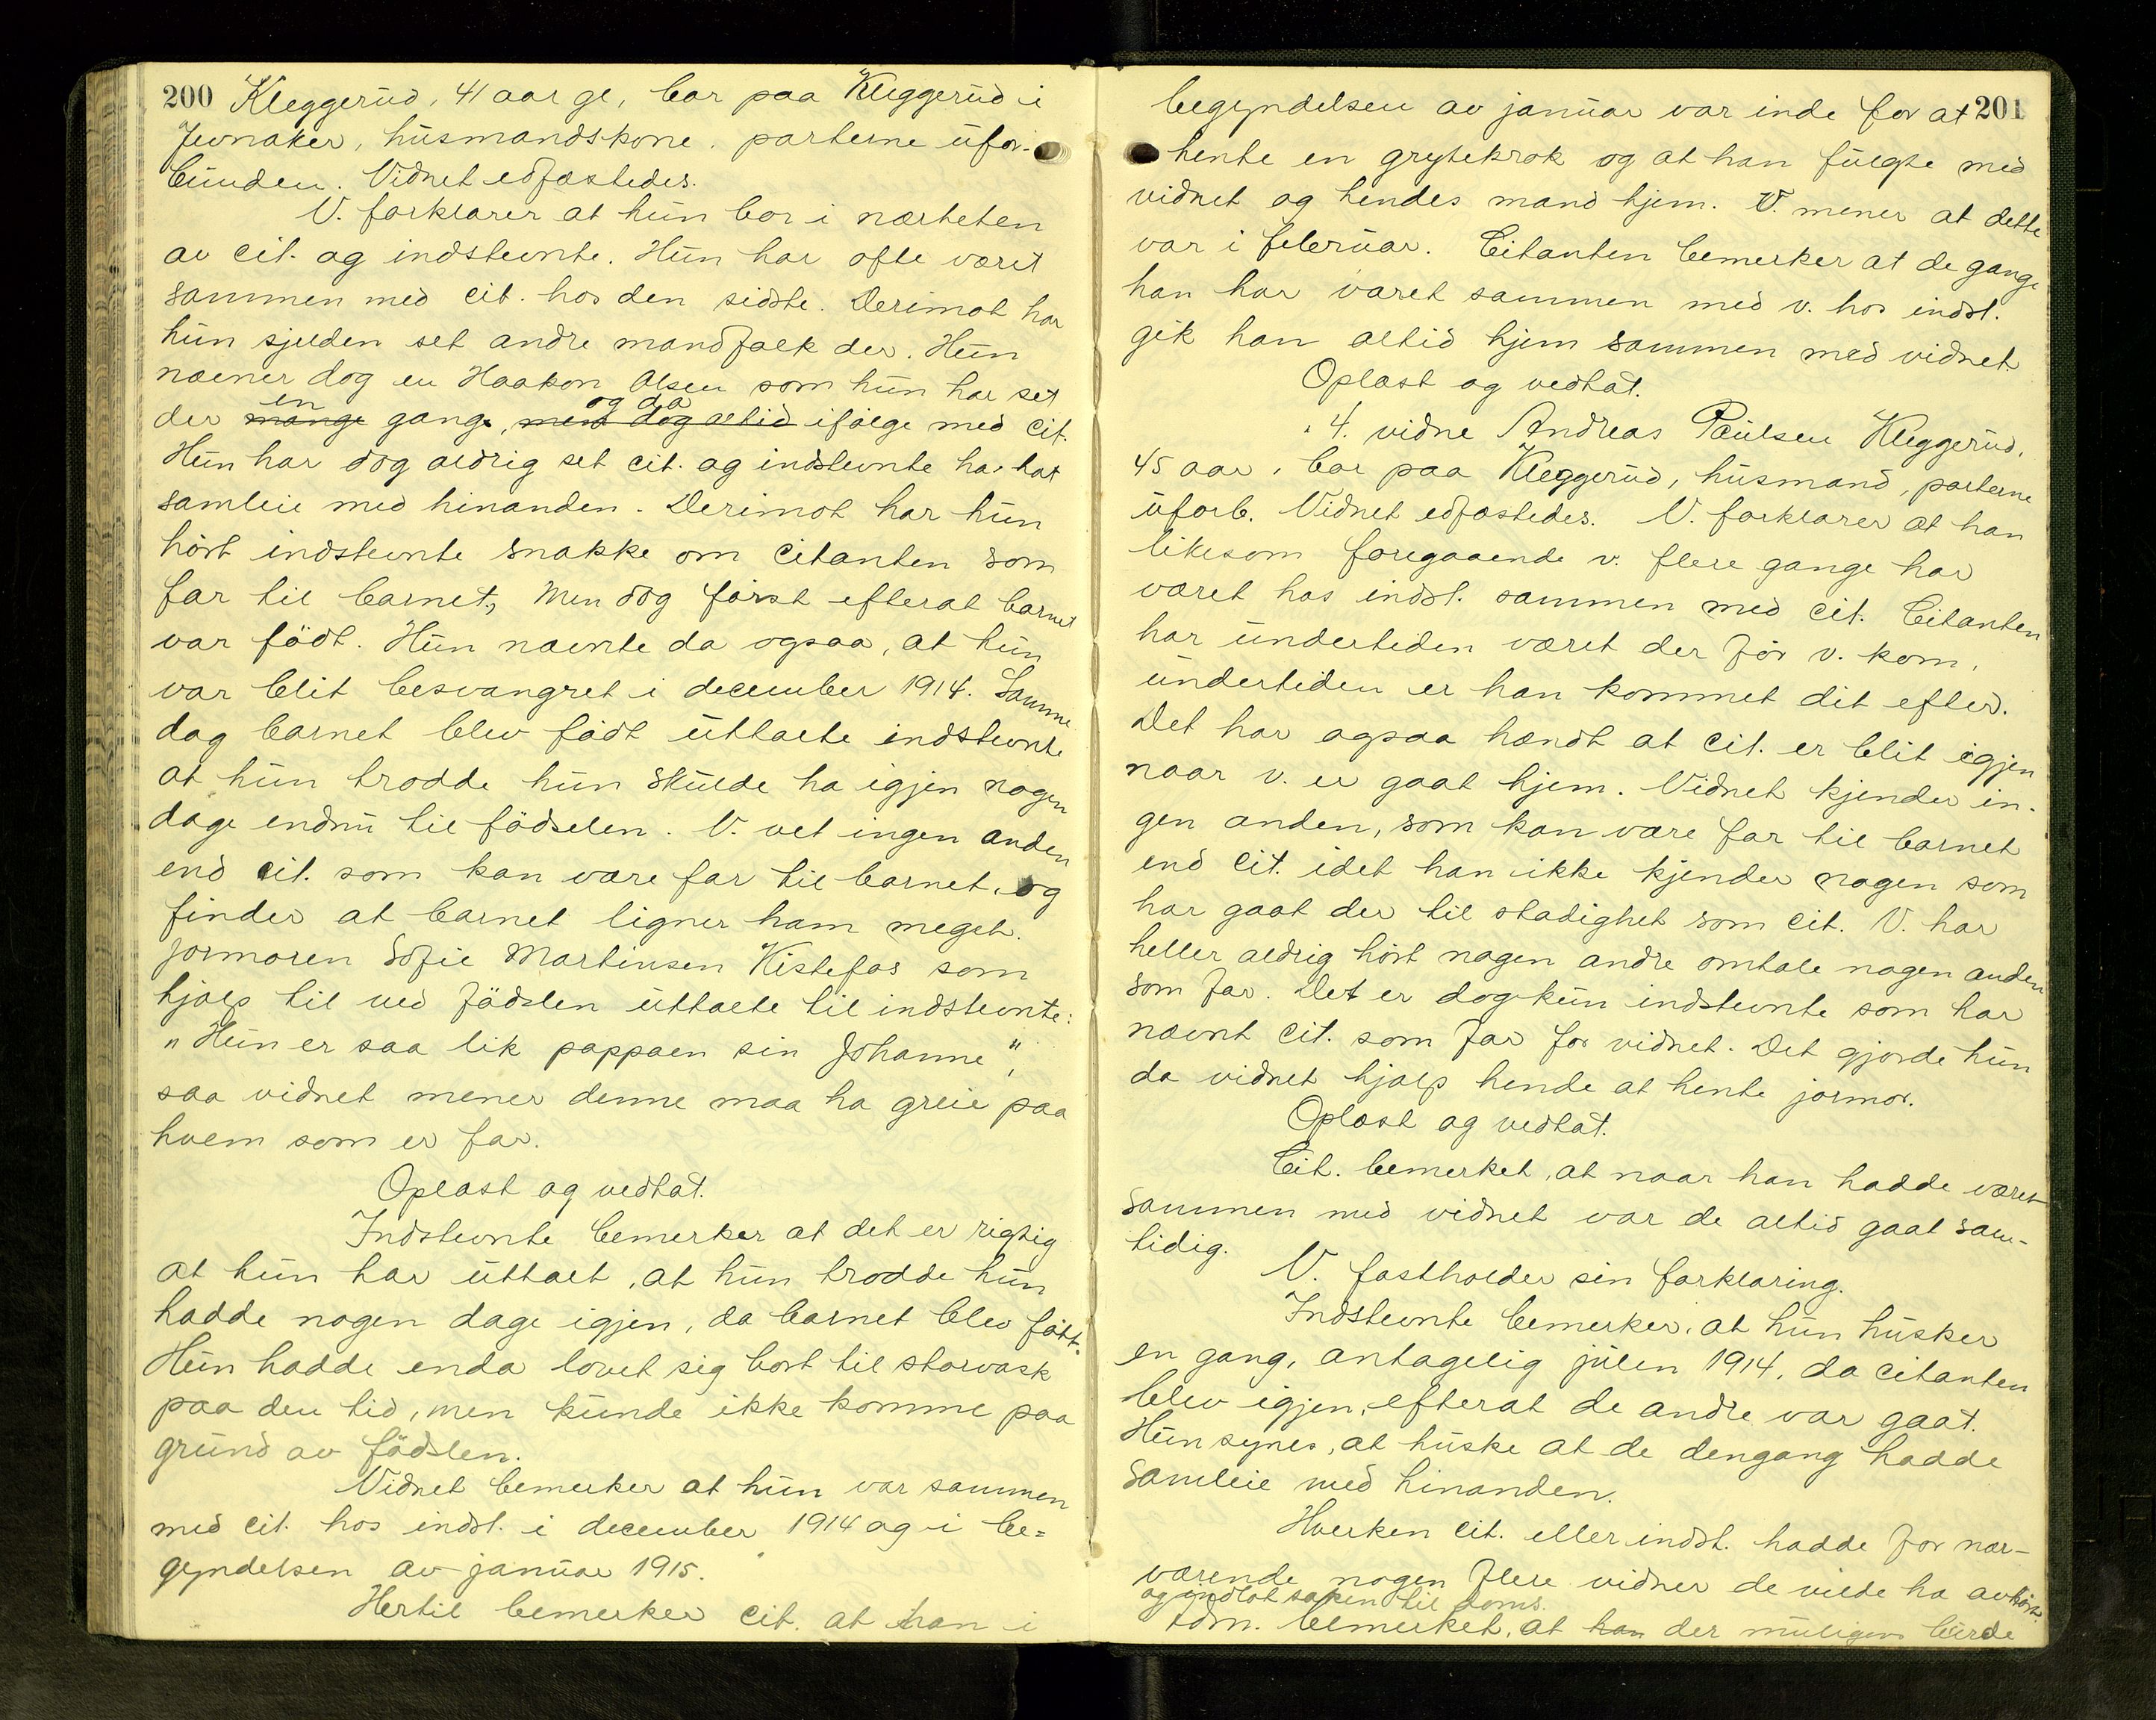 200 Kleggerud, 41 aar gl, bor paa Kleggerud i
Jevnaker, husmandskone, parterne ufor-
bunden. Vidnet edfæstedes.
V. forklarer at hun bor i nærheten
av cit. og indstevnte. Hun har ofte været
sammen med cit. hos den sidste. Derimot har
hun sjelden set andre mandfolk der. Hun
nævner dog en Haakon Olsen som hun har set
en og da
der mange gange, men dog altid ifølge med cit.
Hun har dog aldrig set cit. og indstevnte ha hat
samleie med hinanden. Derimot har hun
hört indstevnte snakke om citanten som
far til barnet, men dog först efterat barnet
var födt. Hun nævnte da ogsaa, at hun
var blit besvangret i december 1914. Samme
dag barnet blev födt uttalte indstevnte
at hun trodde hun skulde ha igjen nogen
dage endnu til födselen. V. vet ingen anden
end cit. som kan være far til barnet og
finder at barnet ligner ham meget.
Jormoren Sofie Martinsen Kistefos som
hjalp til ved födslen uttalte til indstevnte:
"Hun er saa lik pappaen sin Johanne",
saa vidnet mener denne maa ha greie paa
hvem som er far.
Oplæst og vedtat.
Indstevnte bemerker at det er rigtig
at hun har uttalt, at hun trodde hun
hadde nogen dage igjen, da barnet blev födt.
Hun hadde enda lovet sig bort til storvask
paa den tid, men kunde ikke komme paa
grund av födslen.
Vidnet bemerker at hun var sammen
med cit. hos indst. i december 1914 og i be=
gyndelsen av januar 1915.
Hertil bemerker cit. at han i
201
begyndelsen av januar var inde for at
hente en grytekrok og at han fulgte med
vidnet og hendes mand hjem. V. mener at dette
var i februar. Citanten bemerker at de gange
han har været sammen med v. hos indst.
gik han altid hjem sammen med vidnet
Oplæst og vedtat.
4. vidne Andreas Paulsen Kleggerud,
45 aar, bor paa Kleggerud, husmand, parterne
uforb. Vidnet edfæstedes. V. forklarer at han
likesom foregaaende v. flere gange har
været hos indst. sammen med cit. Citanten
har undertiden været der för v. kom,
undertiden er han kommet dit efter.
Det har ogsaa hændt at cit. er blit igjen
naar v. er gaat hjem. Vidnet kjender in-
gen anden, som kan være far til barnet
end cit. idet han ikke kjender nogen som
har gaat der til stadighet som cit. V. har
heller aldrig hört nogen andre omtale nogen anden
som far. Det er dog kun indstevnte som har
nævnt cit. som far for vidnet. Det gjorde hun
da vidnet hjalp hende at hente jormor.
Oplæst og vedtat.
Cit. bemerket, at naar han hadde været
sammen med vidnet var de altid gaat sam-
tidig.
V. fastholder sin forklaring.
Indstevnte bemerker, at hun husker
en gang, antagelig julen 1914, da citanten
blev igjen, efterat de andre var gaat.
Hun synes, at huske at de dengang hadde
samleie med hinanden.
Hverken cit. eller indst. hadde for nær-
værende nogen flere vidner de vilde ha avhört
og indlot saken til doms.
Adm. bemerket, at han der muligens burde